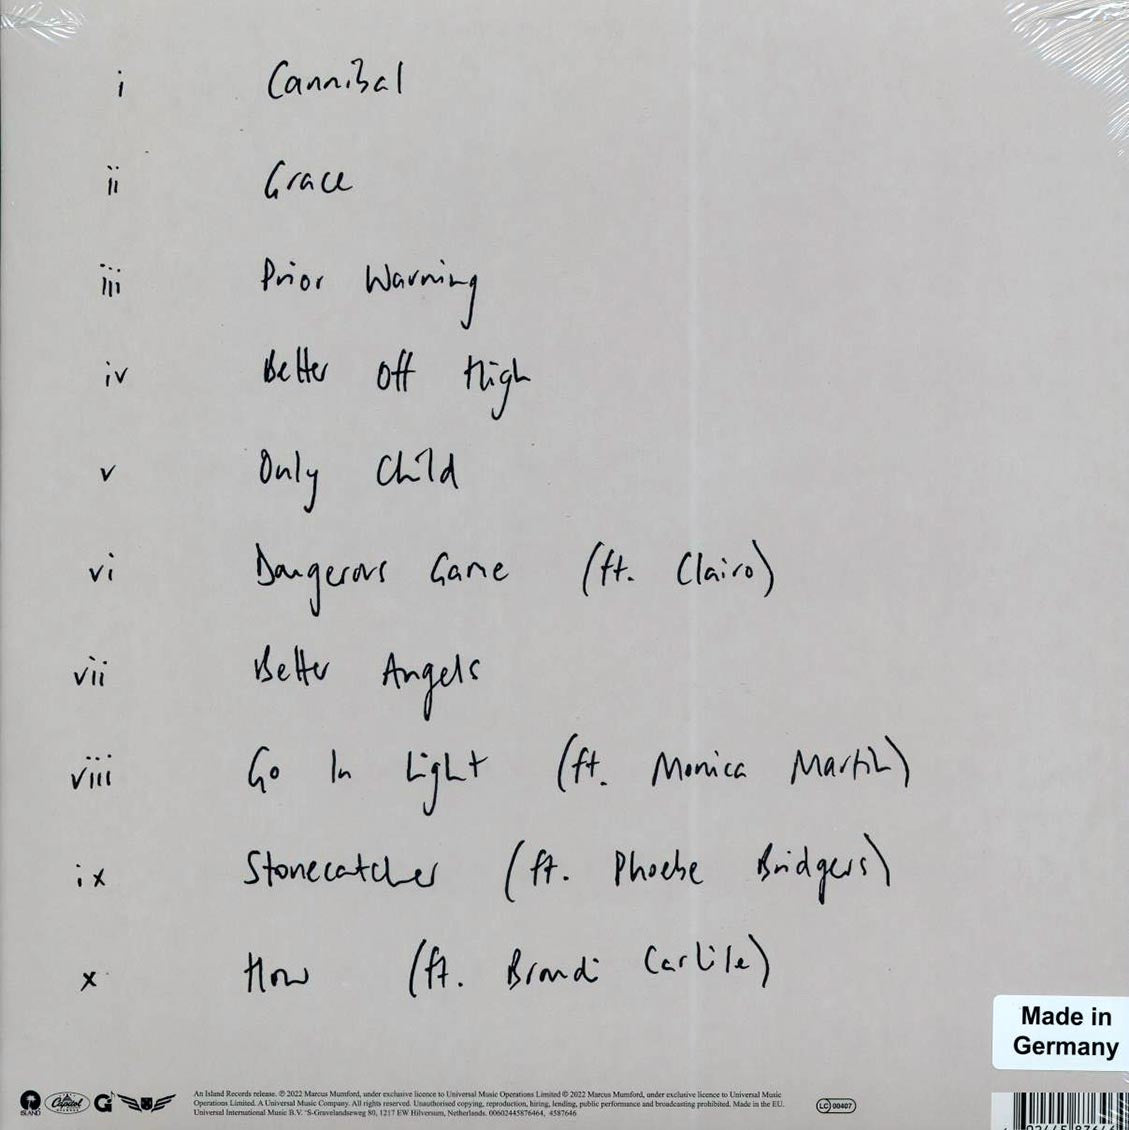 i Cannibal
ii Grace
iii Prior Warning
iv Better Off High
v Only Child
vi Dangerous Game (ft. Clairo)
vii Better Angels
viii Go In Light (ft. Monica Martin)
ix Stonecatcher (ft. Phoebe Bridgers)
x How (ft. Brandi Carlile)
Made in
Germany
ISLAND
Capitol
An Island Records release. ℗ 2022 Marcus Mumford, under exclusive licence to Universal Music Operations Limited © 2022 Marcus Mumford, under exclusive licence to Universal Music
Operations Limited. A Universal Music Company. All rights reserved. Unauthorised copying, reproduction, hiring, lending, public performance and broadcasting prohibited. Made in the EU.
Universal International Music B.V. 'S-Gravelandseweg 80, 1217 EW Hilversum, Netherlands. 00602445876464, 4587646
LC 00407